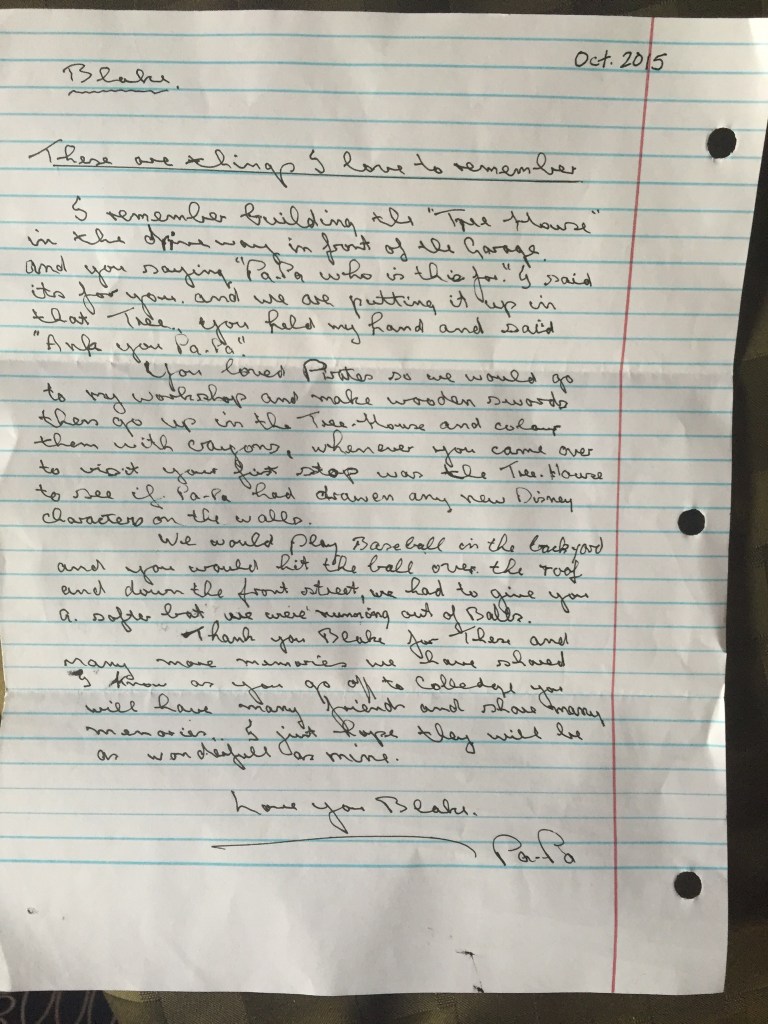 Oct. 2015
Blake.
These are things I love to remember
I remember building the "Tree House"
in the driveway in front of the Garage.
and you saying "Pa.Pa who is this for." I said
its for you. and we are putting it up in
that Tree., you held my hand and said
"Ank you Pa.Pa".
You loved Pirates so we would go
to my workshop and make wooden swords
then go up in the Tree-House and colour
them with crayons, whenever you came over
to visit your first stop was the Tree.House
to see if Pa-Pa had drawen any new Disney
characters on the walls.
We would Play Baseball in the backyard
and you would hit the ball over the roof
and down the front street, we had to give you
a. softer bat we were running out of Balls.
Thank you Blake for These and
many more memories we have shared
I know as you go off to Colledge you
will have many friends and share many
memories.. I just hope they will be
as wonderfull as mine.
Love you Blake.
Pa-Pa